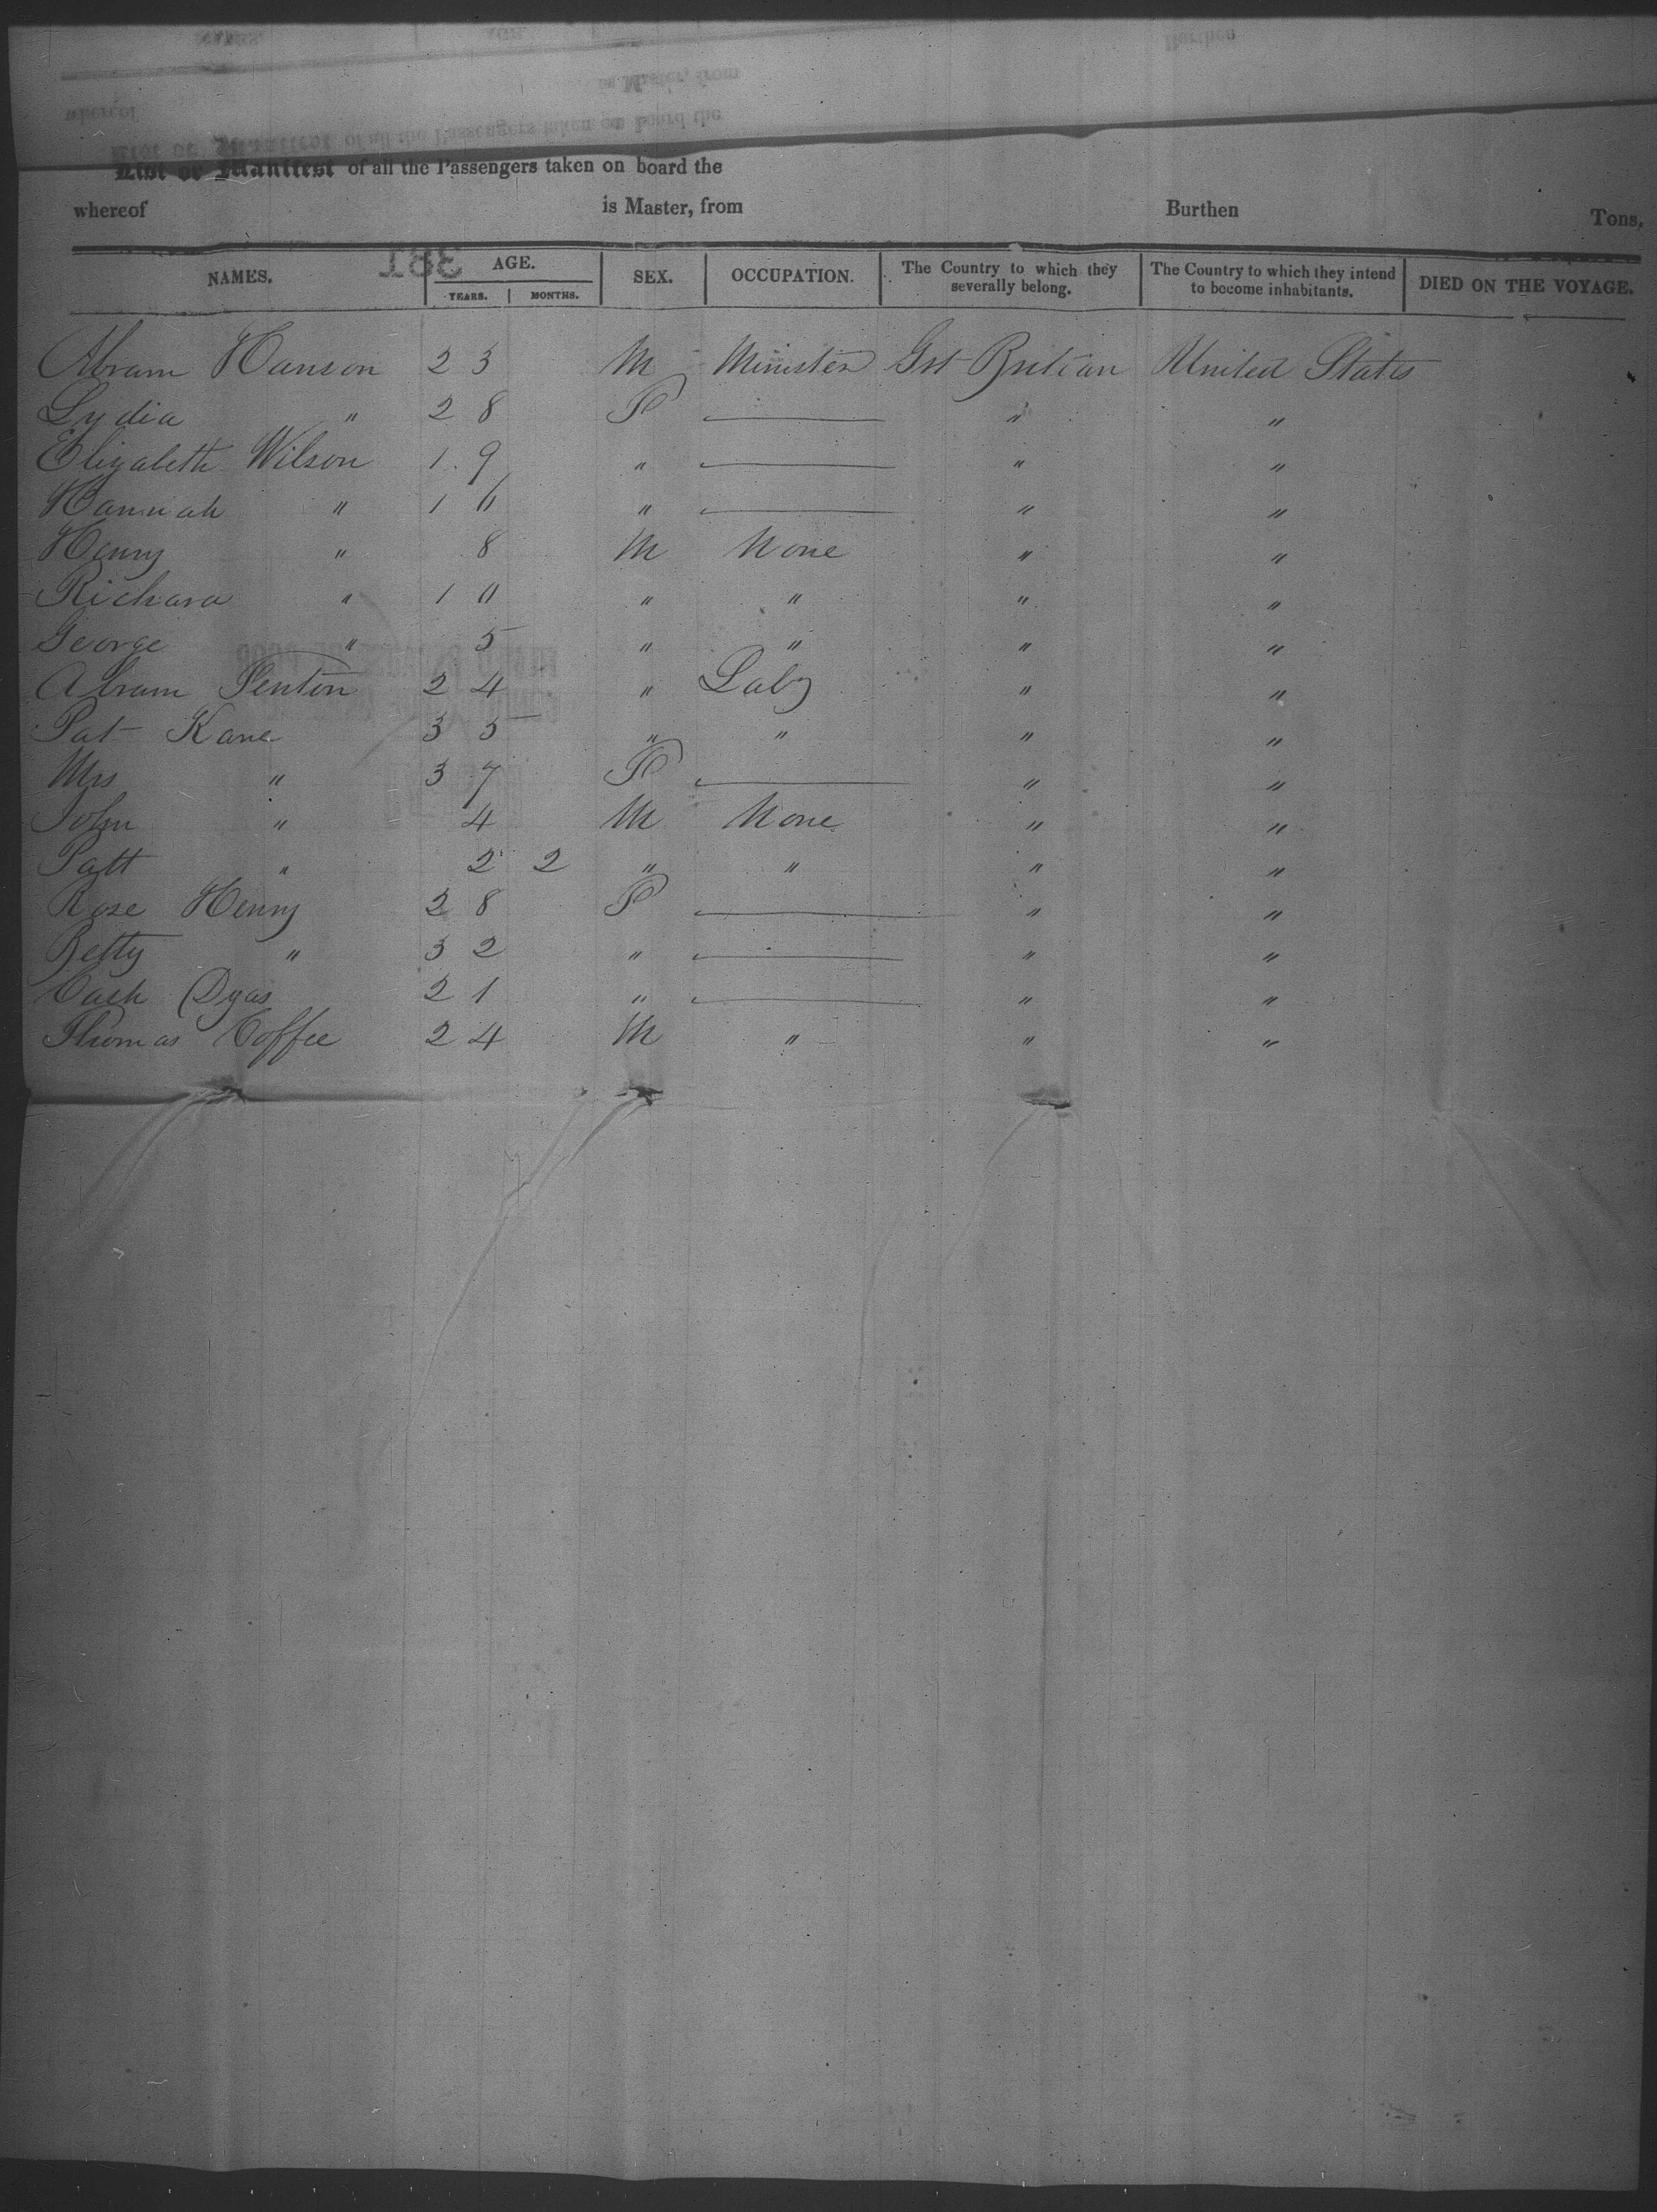 List or Manifest of all the Passengers taken on board the
whereof is Master, from Burthen Tons,
NAMES. AGE. SEX. OCCUPATION. The Country to which they severally belong. The Country to which they intend to become inhabitants. DIED ON THE VOYAGE.
YEARS. MONTHS.
Abram Hanson 23 M Minister Grt Britian United States
Lydia " 28 F — " "
Elizabeth Wilson 19 " — " "
Hannah " 1 " — " "
Henry " 8 M None " "
Richard " 1 " " " "
George " 5 " " " "
Abram Fenton 24 " Labr " "
Pat Kane 35 " " " "
Mrs " 37 F — " "
John " 4 M None " "
Patt " 2 2 " " " "
Rose Henry 28 F — " "
Betty " 32 " — " "
Cath Dyas 21 " — " "
Thomas Coffee 24 M " " "